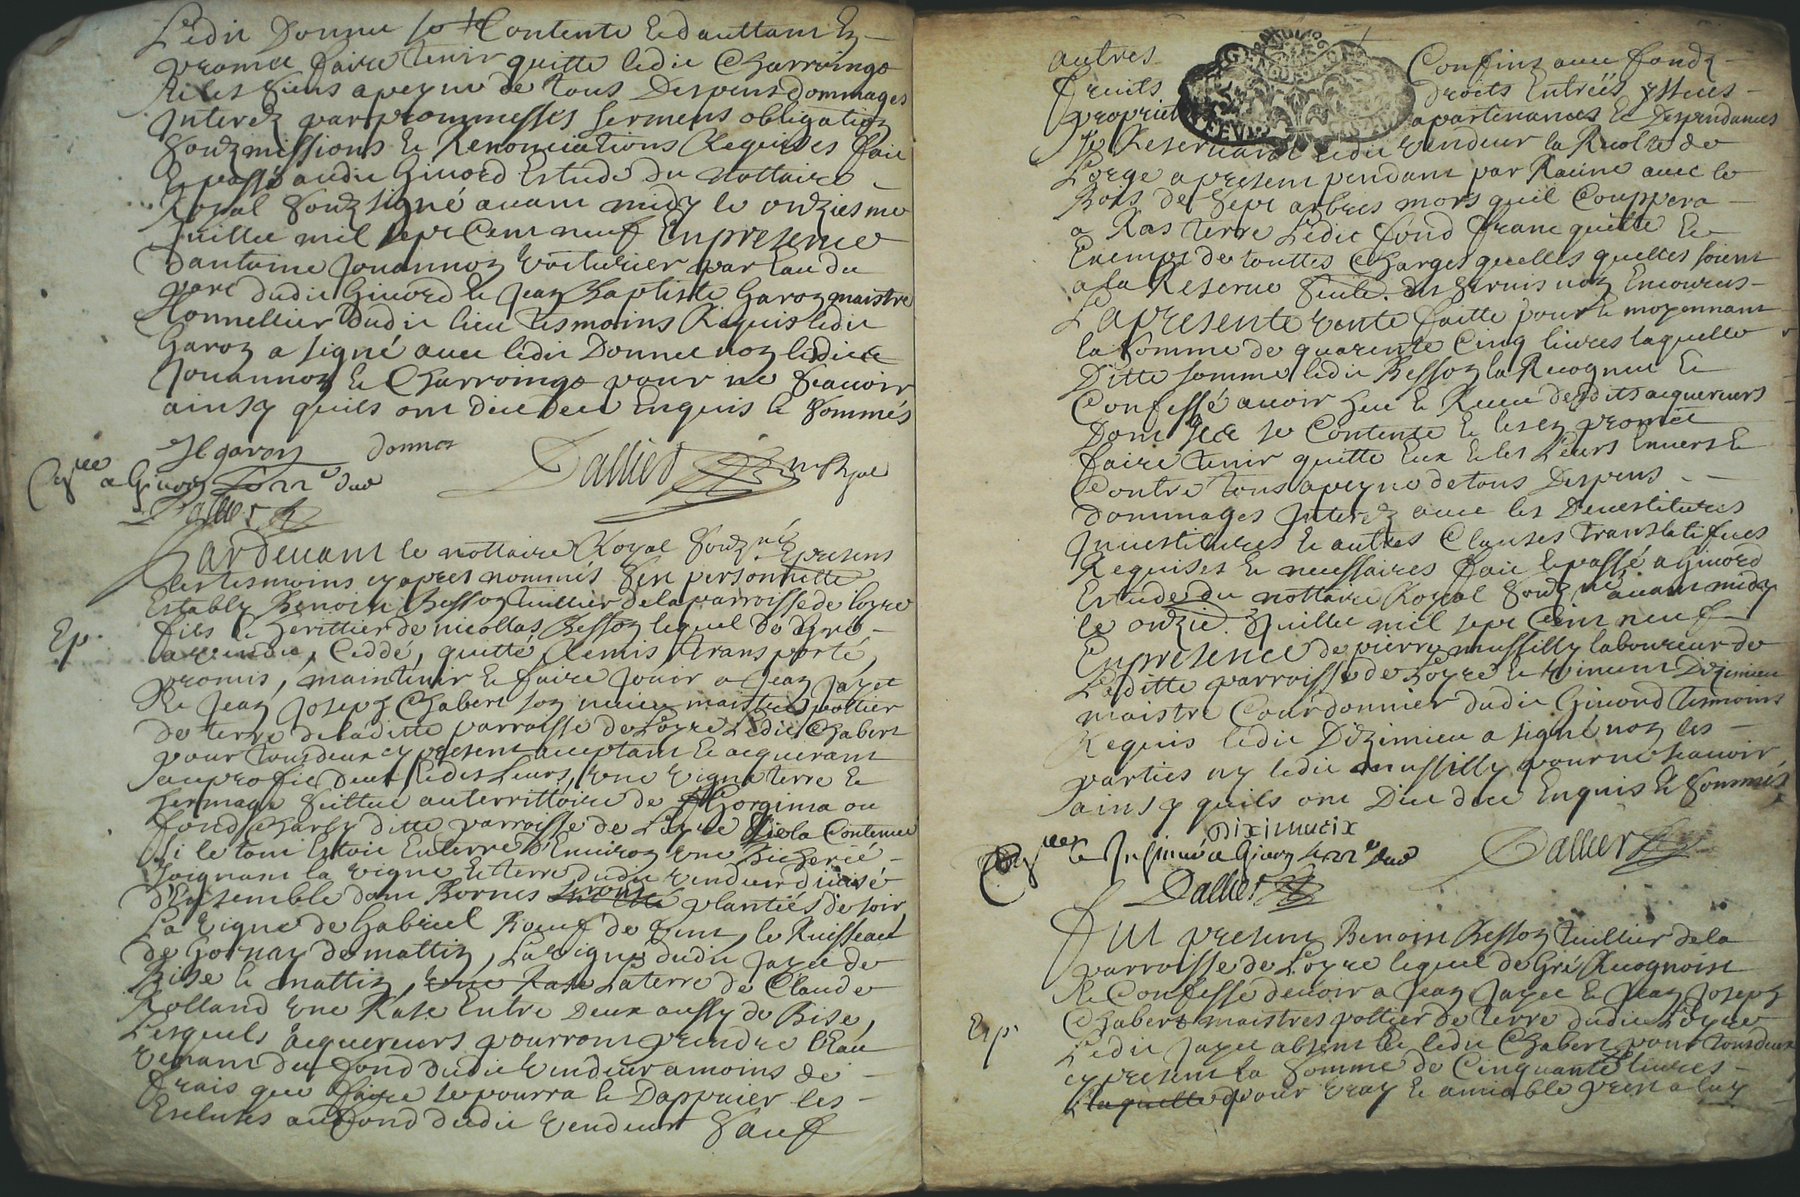 Ledit Donnet se Contente Et dauttant En
promet faire tenir quitte ledit Charroingt
Et les siens a peyne de tous Despens dommages
Interez par prommesses sermens obligation
soubzmissions Et Renonciations Requises fait
Et passé audit Givord Estude du nottaire
Royal soubzsigné avant midy le onziesme
Juillet mil sept Cent neuf En presence
dantoine Jouannon voiturier par Eau du
port dudit Givord Et Jean Baptiste Garon maistre
Tonnellier dudit lieu tesmoins Requis ledit
Garon a signé avec ledit Donnet non lesdits
Jouannon Et Charroingt pour ne scavoir
ainsy quils ont dit de ce Enquis Et sommés
JB garon donnet Dallier n re Royal
a Givord
Dallier
Pardevant le nottaire Royal soubzné Et presens
les tesmoins cy apres nommés sest personnelle
Estably Benoist Besson tuillier de la parroisse de loyre
fils Et herittier de nicollas Besson lequel de Gré
Ep.
a vendu, Ceddé, quitté, Remis Et transporté,
promis, maintenir Et faire jouir a Jean Jayet
Et Jean Joseph Chabert son neveu maistres pottier
de terre de laditte parroisse de Loyre Ledit Chabert
pour tous deux cy present acceptant Et acquerant
au proffit deux Et des Leurs, une vigne terre Et
hermage scittué au territtoire de Gorgima ou
fond Charby ditte parroisse de Loyre de la Contenue
le tout Estoit En terre d'Environ une bicherée
Joignant la vigne Et terre dudit vendeur divisé
d'Ensemble dont Bornes plantiés de soir,
La vigne de Gabriel Roeuf de vent, le Ruisseau
de Gornay de mattin, La vigne dudit Jayet de
Bise Et mattin, une Rase La terre de Claude
Rolland une Rase Entre Deux aussy de Bise,
Lesquels acquereurs pourront prendre l'Eau
venant du fond dudit vendeur a moins de
frais que faire se pourra Et Dappuier les
Escluses au fond dudit vendeur Sauf
autres Confins avec fondz
fruits droits Entrées yssues
propriet apartenances Et Dependances
Se Reservant ledit vendeur la Recolte de
Lorge a present pendant par Racine avec le
Bois de sept arbres mors quil Couppera
a Ras terre Ledit fond franc quitte Et
Exempt de touttes Charges quelles quelles soient
a la Reserve seule des servis non Encourus
La presente vente faitte pour Et moyennant
la somme de quarente Cinq livres laquelle
Ditte somme ledit Besson la Recognu Et
Confessé avoir heu Et Receu desdits acquereurs
Dont Il se Contente Et les En promet
faire tenir quitte Eux Et les Leurs Envers Et
Contre tous a peyne de tous Despens
dommages Interez avec les Devestitures
Investitures Et autres Clauses translatifves
Requises Et necessaires fait Et passé a Givord
Estude du nottaire Royal soubzné avant midy
le onzie. Juillet mil sept Cent neuf
En presence de pierre mussilly laboureur de
Laditte parroisse de Loyre Et vincent Dizimieu
maistre Courdonnier dudit Givord tesmoins
Requis ledit Dizimieu a signé non les
parties ny ledit mussilly pour ne scavoir
ainsy quils ont Dit de ce Enquis Et sommés
Diximieux
Dallier
Dallier
Fut present Benoist Besson tuillier de la
parroisse de Loyre lequel de Gré Recognoist
Et Confesse devoir a Jean Jayet Et Jean Joseph
Chabert maistres pottier de terre dudit Loyre
Ep
Ledit Jayet absent Et ledit Chabert pour tous deux
cy present la somme de Cinquante livres
Laquelle pour vray Et amiable prest a luy